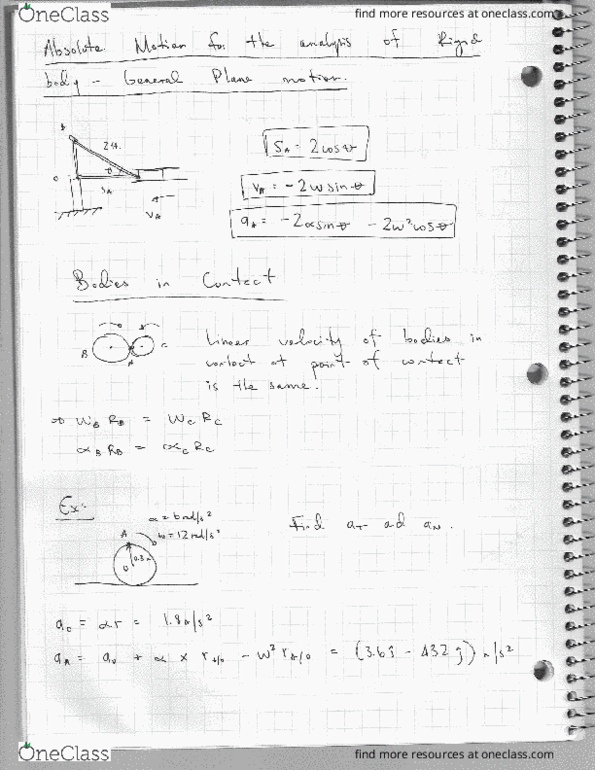 OneClass find more resources at oneclass.com
Absolute Motion for the analysis of Rigid
body - General Plane motion.
2 ft.
θ
S_A
V_A
S_A = 2cosθ
V_A = -2ωsinθ
a_A = -2αsinθ - 2ω²cosθ
Bodies in Contact
B A C
Linear velocity of bodies in
contact at point of contact
is the same.
⇒ ω_B R_B = ω_C R_C
α_B R_B = α_C R_C
Ex:
α = 6 rad/s²
A ω = 12 rad/s
0.3 m
Find a_T ad a_N.
a_o = αr = 1.8 m/s²
a_A = a_o + α × r_A/o - ω² r_A/o = (3.6 - 43.2 j) m/s²
OneClass find more resources at oneclass.com